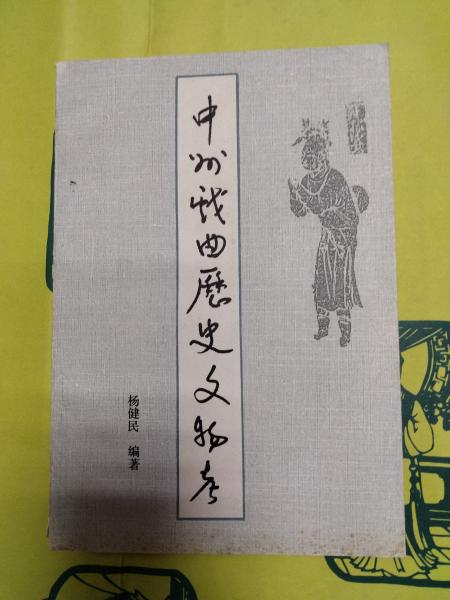 中州戏曲历史文物考
杨健民 编著